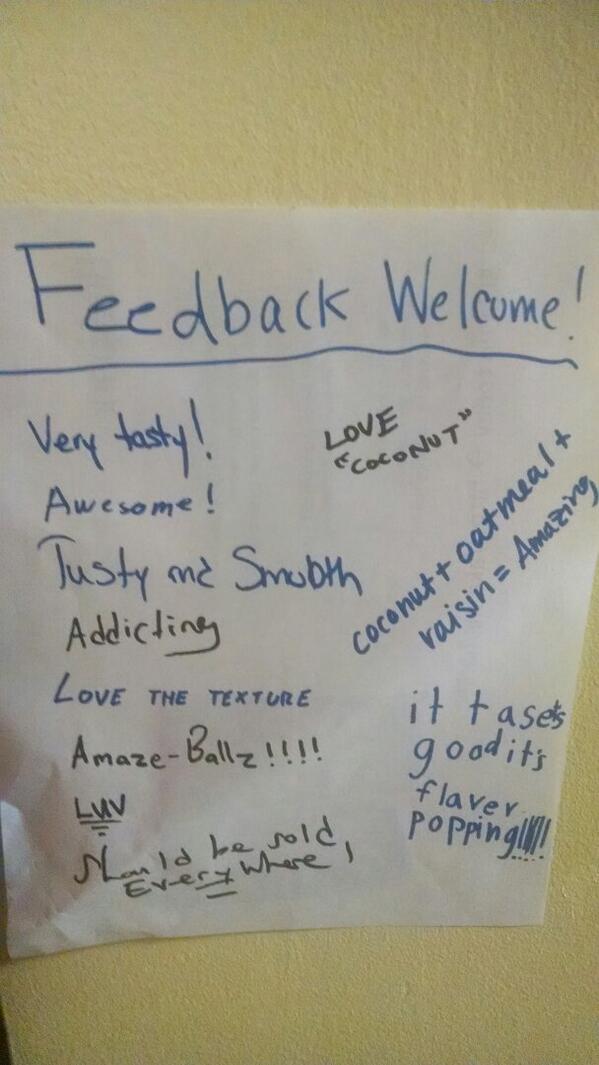 Feedback Welcome!
Very tasty!
Awesome!
Tasty and Smooth
Addicting
LOVE THE TEXTURE
Amaze-Ballz!!!!
LUV
Should be sold
EveryWhere!
LOVE
"COCONUT"
coconut + oatmeal +
raisin = Amazing
it tasets
good it's
flaver
popping!!!!!!